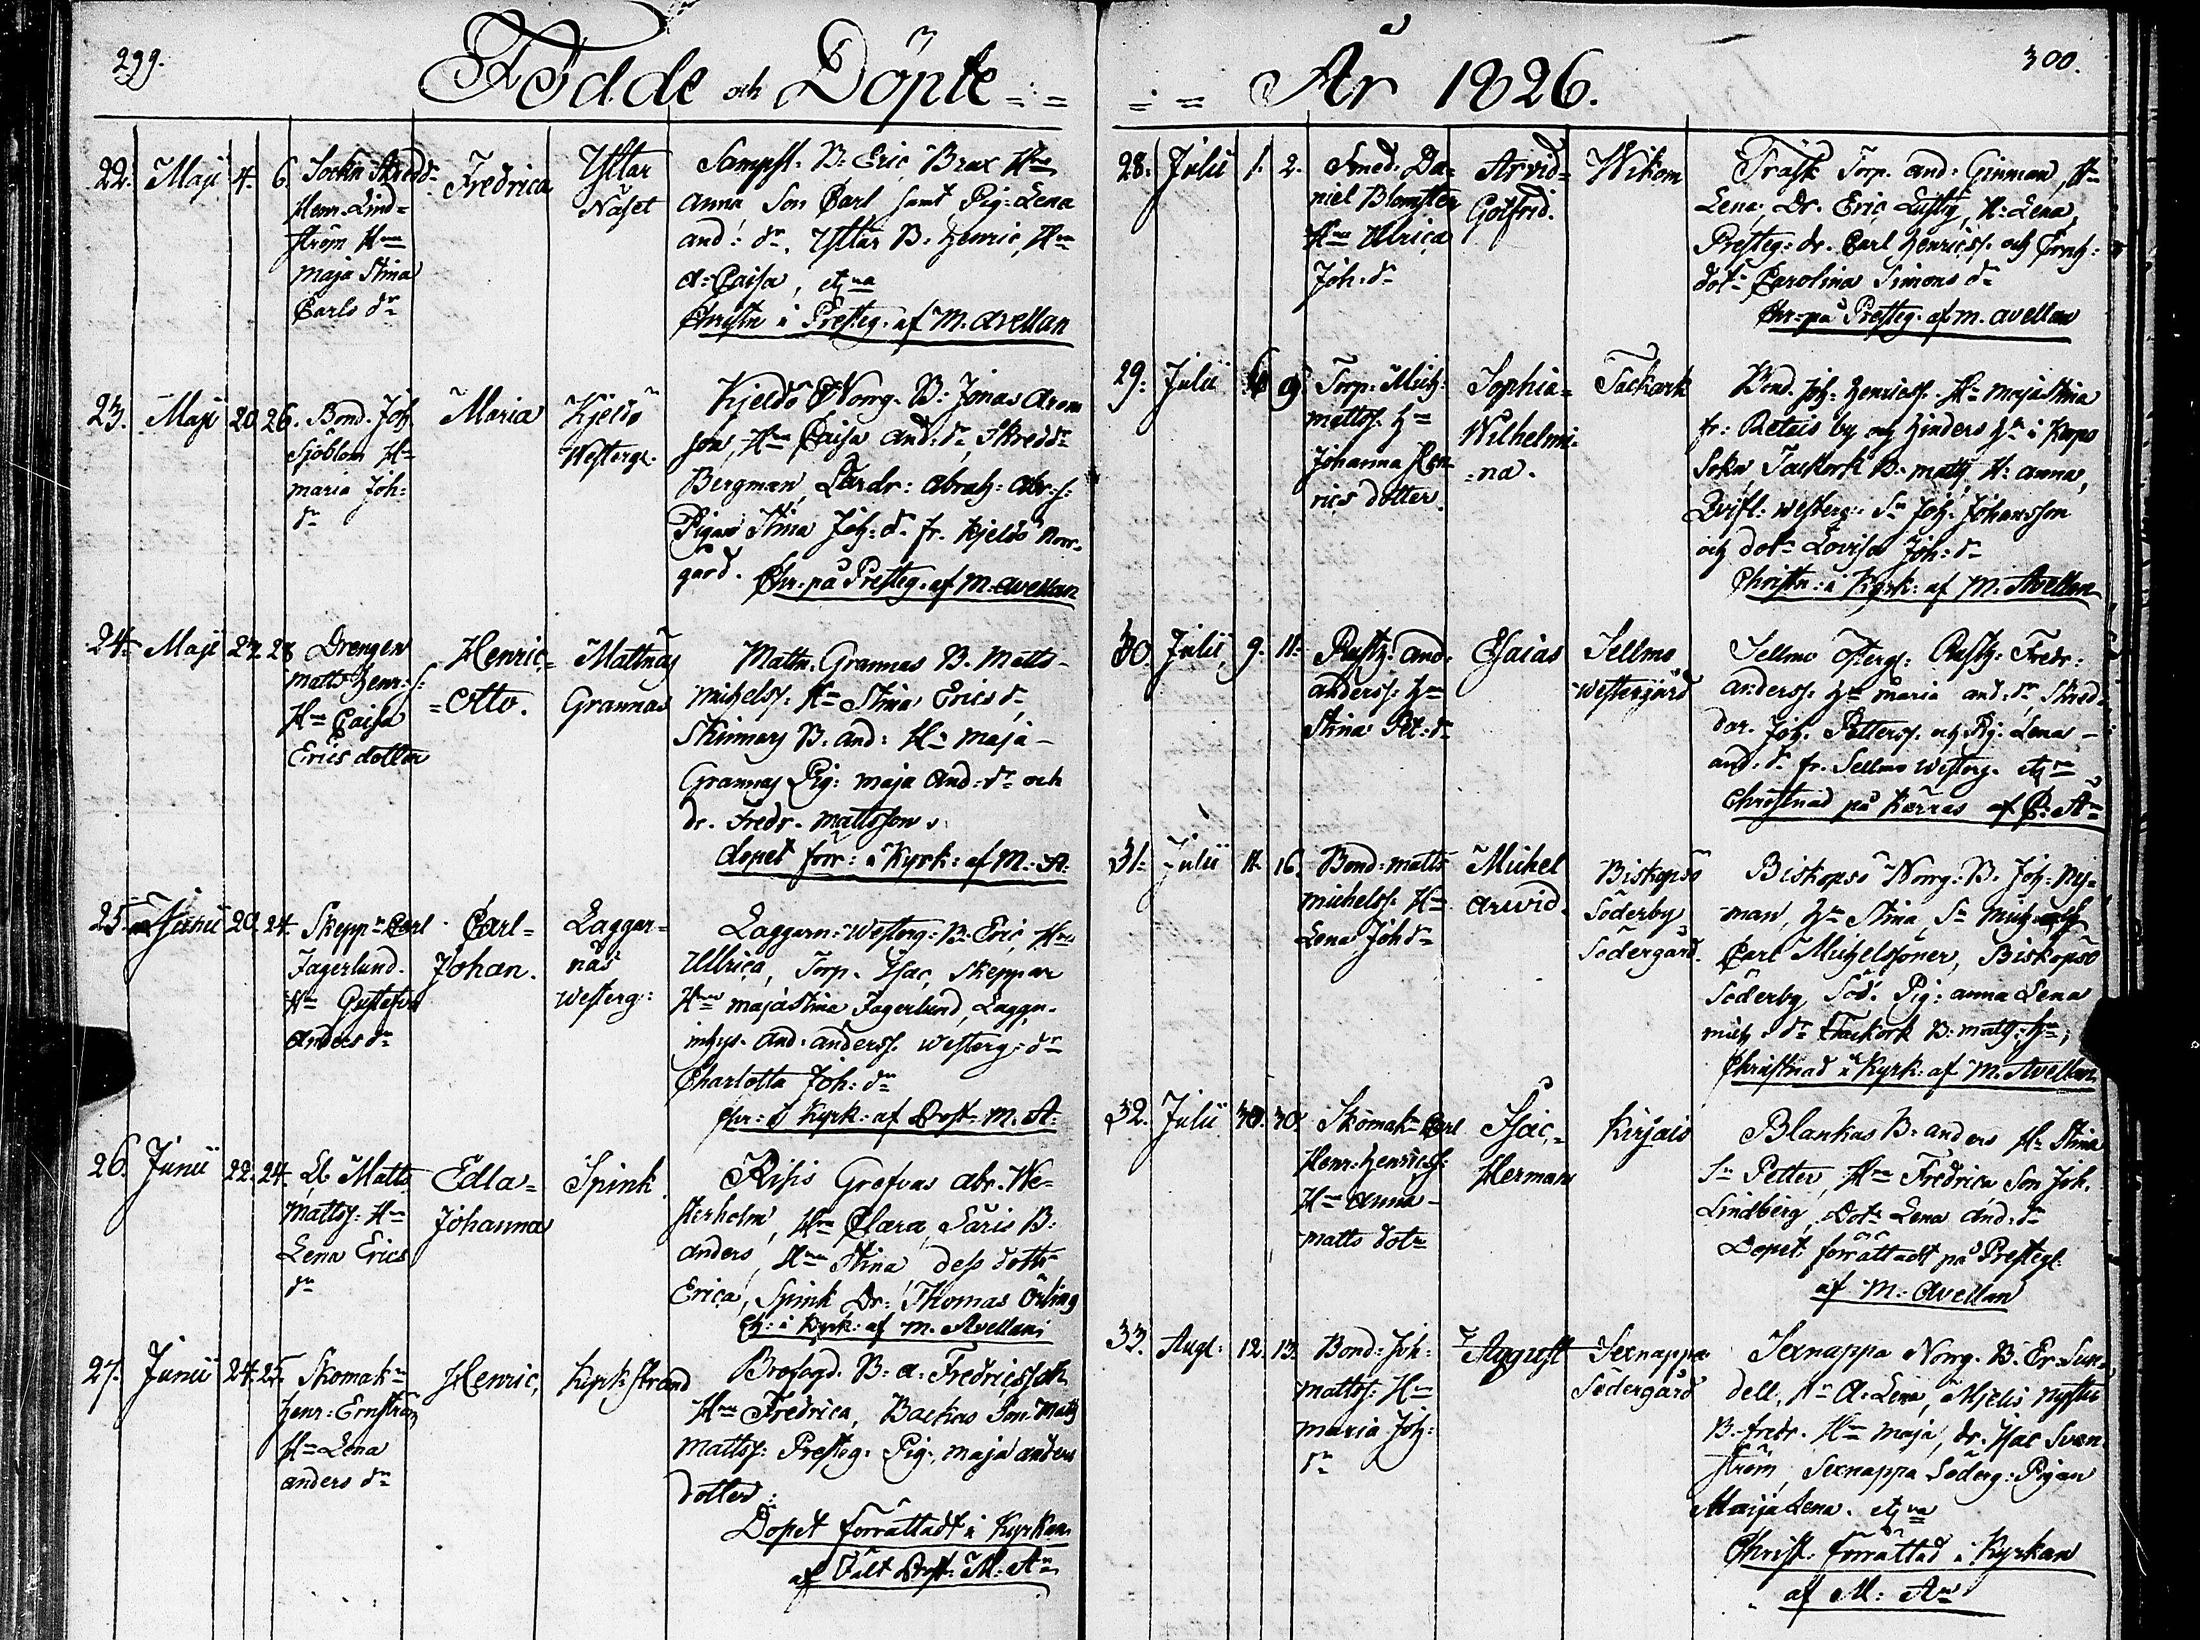 299.
Födde och Döpte
22. Maji 4. 6. Sockn Skredd-
Henr. Lind-
ström Hu
Maja Stina
Carls dr
Fredrica
Yttar
Näset
B: Eric Brax Hu
Anna Son Carl samt Pig: Lena
And: dr. Yttar B: Henric, Hu
A: Caisa, etz
Christn i Presteg. af M. Avellan
23. Maji 20. 26. Bond. Joh
Sjöblom Hu
Maria Joh:
dr
Maria
Kjeldö
Westerg.
Kjeldö Norrg. B: Jonas Arons
son, Hu Caisa And: dr, Skreddr
Bergman, Abrah: Abr: s:
Pigan Stina Joh: dr fr. Kjeldö Norr-
gård. Chr: på Presteg. af M. Avellan
24. Maji 27. 28 Drengen
Matts Henr: s:
Hu Caisa
Erics dotter
Henric-
Otto.
Mattnäs
Grannas
Mattn. Grannas B. Matts
Michelss. Hu Stina Erics dr
Skinnars B. And: Hu Maja
Grannas Pig: Maja And: dr och
dr. Fredr. Mattsson
dopet förr: i Kyrk: af M. A.
25. Junii 20. 24. Skepp Carl
Fagerlund.
Hu Gustafva
Anders dr
Carl-
Johan.
Laggar-
näs
Westerg:
Laggarn: Westerg: B. Eric, Hu
Ullrica, Torp. Isac, Skeppar
Hu Majastina Fagerlund, Laggn-
inhys. And. Anderss. Westerg: dr
Charlotta Joh: dr
Chr: i Kyrk: af Prost: M. A:
26. Junii 22. 24. Matts
Mattss: Hu
Lena Erics
dr
Edla-
Johanna
Spink.
Risis Grefvas Abr. We-
sterholm, Hu Clara, Saris B:
Anders, Hu Stina dess dottr
Erica, Spink Dr: Thomas Örling
Ch: i Kyrk: af M. Avellan
27. Junii 24. 25. Skomak
Henr: Ernström
Hu Lena
Anders dr
Henric,
Kyrkstrand
B. A: Fredricsson
Hu Fredrica, Backas Son Matts
Mattss: Presteg. Pig. Maja Anders
dotter:
Dopet förrättadt i Kyrkan
af Prost: M. An
300.
År 1826.
28. Julii 1. 2. Smed. Da-
niel Blomster
Hu Ulrica
Joh. dr
Arvid-
Gotfrid.
Wikom
Träsk Torp. And: Ginman, Hu
Lena, Dr. Eric Lustig, H: Lena,
Presteg: dr. Carl Henricss. och
dotr Carolina Simons dr
Chr: på Presteg. af M. Avellan
29. Julii 9. Torp. Mich:
Mattss. Hu
Johanna Hen-
rics dotter.
Sophia-
Wilhelmi-
na.
Tackork
Bond. Joh: Henricss. Hu Majastina
fr: Retais by och Hinders Hu i Korpo
Sokn, Tackork B. Matts, H. Anna,
Westerg: Sn Joh: Johansson
och dotr Lovisa Joh: dr
Christn: i Kyrk: af M. Avellan
30. Julii, 9. 11. Rusth: And:
Anderss. Hu
Stina Pet: dr
Esaias
Sellmo
Westergård
Sellmo Österg: Rusth: Fredr:
Anderss. Hu Maria And: dr, Skred-
dar. Joh. Petterss. och Pig: Lena
And: dr fr. Sellmo Westerg. etz
Christnad på Kärras af P: A
31. Julii 11. 16. Bond: Matts
Michelss. Hu
Lena Joh dr
Michel
Arwid.
Biskopsö
Söderby
Södergård.
Biskopsö Norrg: B. Joh: Ny-
man, Hu Stina, Sn Mich:
Carl Michelssöner, Biskopsö
Söderby, Söd. Pig: Anna Lena
Mich: dr Tackork B: Matts: Hu,
Christnad i Kyrk: af M. Avellan
32. Julii 30. 30. Skomak Carl
Henr: Henricss:
Hu Anna
Matts dotr
Isac,-
Herman
Kirjais
Blankas B. Anders Hu Stina
Sn Petter, Hu Fredrica Son Joh.
Lindberg, Dotr Lena And: dr
Dopet förrättadt på Presteg:
af M. Avellan
33. Augt: 12. 13. Bond: Joh:
Mattss: Hu
Maria Joh:
dr
August
Sexnappa
Södergård
Sexnappa Norrg. B. Er: Sun-
dell, Hu A: Lena, Mielis Nystu
B. Fredr. Hu Maja, dr. Isac Svan-
ström, Sexnappa Söderg: Pigan
Maija Lena. etz
Christ. förrättad i Kyrkan
af M: An